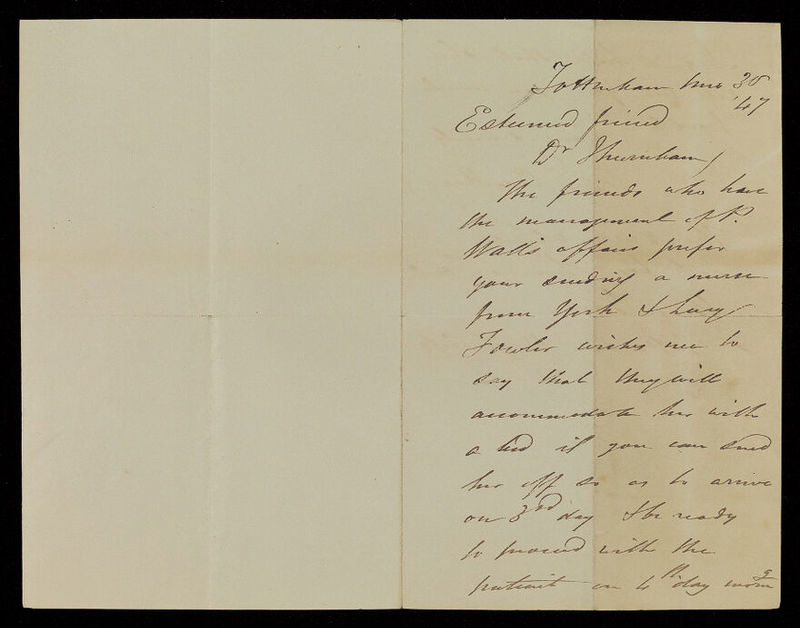 Tottenham 30
'47
Esteemed friend
Dr Thurnham/
The friends who have
the management of P.
Wall's affairs prefer
your sending a nurse
from York & Lucy
Fowler wishes me to
say that they will
accommodate her with
a bed if you can send
her off so as to arrive
on 3rd day & be ready
to proceed with the
patient on 4th day morng